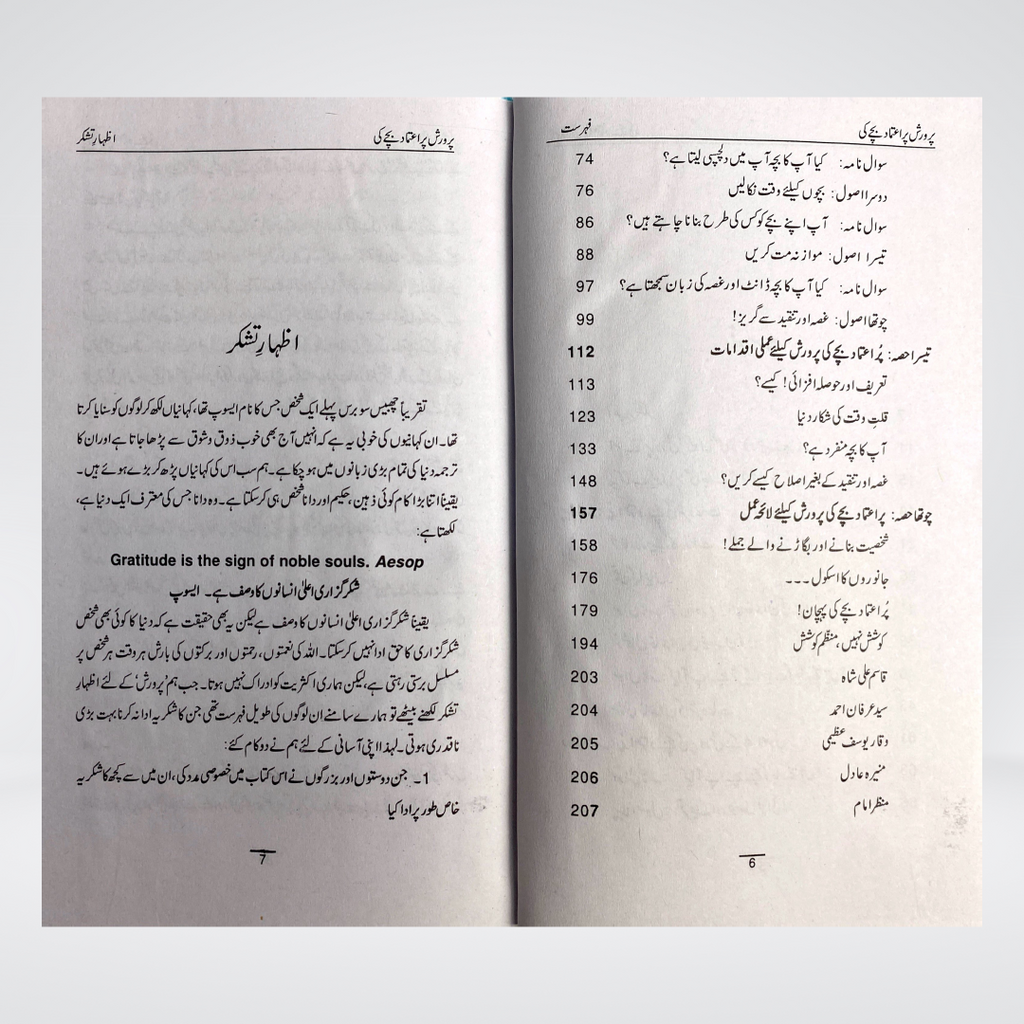 پرورش پر اعتماد بچے کی فہرست
سوال نامہ: کیا آپ کا بچہ آپ میں دلچسپی لیتا ہے؟ 74
دوسرا اصول: بچوں کیلئے وقت نکالیں 76
سوال نامہ: آپ اپنے بچے کو کس کی طرح بنانا چاہتے ہیں؟ 86
تیسرا اصول: موازنہ مت کریں 88
سوال نامہ: کیا آپ کا بچہ ڈانٹ اور غصہ کی زبان سمجھتا ہے؟ 97
چوتھا اصول: غصہ اور تنقید سے گریز! 99
تیسرا حصہ: پُر اعتماد بچے کی پرورش کیلئے عملی اقدامات 112
تعریف اور حوصلہ افزائی! کیسے؟ 113
قلتِ وقت کی شکار دنیا 123
آپ کا بچہ منفرد ہے؟ 133
غصہ اور تنقید کے بغیر اصلاح کیسے کریں؟ 148
چوتھا حصہ: پر اعتماد بچے کی پرورش کیلئے لائحہ عمل 157
شخصیت بنانے اور بگاڑنے والے جملے! 158
جانوروں کا اسکول ۔۔۔ 176
پُر اعتماد بچے کی پہچان! 179
کوشش نہیں، منظم کوشش 194
قاسم علی شاہ 203
سید عرفان احمد 204
وقار یوسف عظیمی 205
منیرہ عادل 206
منظر امام 207
6
پرورش پر اعتماد بچے کی اظہارِ تشکر
اظہارِ تشکر
تقریباً چھبیس سو برس پہلے ایک شخص جس کا نام ایسوپ تھا، کہانیاں لکھ کر لوگوں کو سنایا کرتا
تھا۔ ان کہانیوں کی خوبی یہ ہے کہ انہیں آج بھی خوب ذوق و شوق سے پڑھا جاتا ہے اور ان کا
ترجمہ دنیا کی تمام بڑی زبانوں میں ہو چکا ہے۔ ہم سب اس کی کہانیاں پڑھ کر بڑے ہوئے ہیں۔
یقیناً اتنا بڑا کام کوئی ذہین، حکیم اور دانا شخص ہی کر سکتا ہے۔ وہ دانا جس کی معترف ایک دنیا ہے،
لکھتا ہے:
Gratitude is the sign of noble souls. Aesop
شکر گزاری اعلیٰ انسانوں کا وصف ہے۔ ایسوپ
یقیناً شکر گزاری اعلیٰ انسانوں کا وصف ہے لیکن یہ بھی حقیقت ہے کہ دنیا کا کوئی بھی شخص
شکر گزاری کا حق ادا نہیں کر سکتا۔ اللہ کی نعمتوں، رحمتوں اور برکتوں کی بارش ہر وقت ہر شخص پر
مسلسل برستی رہتی ہے، لیکن ہماری اکثریت کو ادراک نہیں ہوتا۔ جب ہم ’پرورش‘ کے لئے اظہارِ
تشکر لکھنے بیٹھے تو ہمارے سامنے ان لوگوں کی طویل فہرست تھی جن کا شکریہ ادا نہ کرنا بہت بڑی
ناقدری ہوتی۔ لہذا اپنی آسانی کے لئے ہم نے دو کام کئے:
1۔ جن دوستوں اور بزرگوں نے اس کتاب میں خصوصی مدد کی، ان میں سے کچھ کا شکریہ
خاص طور پر ادا کیا
7